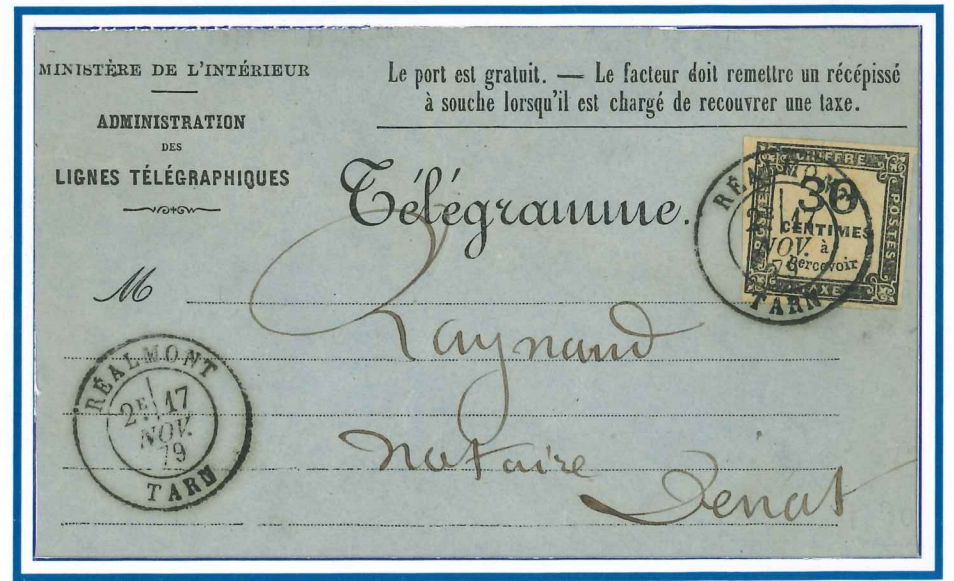 MINISTÈRE DE L'INTÉRIEUR
ADMINISTRATION
DES
LIGNES TÉLÉGRAPHIQUES
Le port est gratuit. — Le facteur doit remettre un récépissé
à souche lorsqu'il est chargé de recouvrer une taxe.
Télégramme.
CHIFFRE
POSTES
TAXE
30
CENTIMES
à
Percevoir
RÉALMONT
2E 17
NOV.
79
TARN
M
Raynaud
notaire
Denat
RÉALMONT
2E 17
NOV.
79
TARN